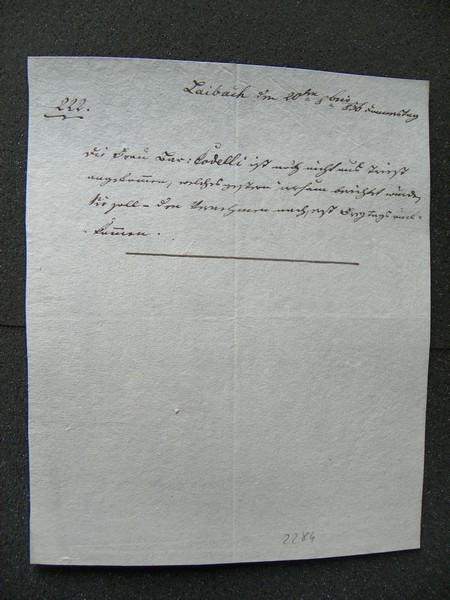 Laibach den 20ten 8bris 836 Donnerstag
222.
Die Frau Bar: Codelli ist noch nicht aus Triest
angekommen, welches gestern berichtet wurde,
sie soll den Vernehmen nach erst Freytags an-
kommen.
2284